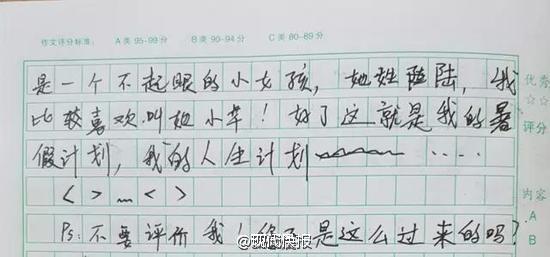 作文评分标准： A类 95-99分 B类 90-94分 C类 80-89分
是一个不起眼的小女孩，她姓陆，我
比较喜欢叫她小草！好了这就是我的暑
假计划，我的人生计划 ....
< > … < >
Ps：不要评价我！你不是这么过来的吗？
优秀
☆☆
评分
内容
A
B
@现代快报